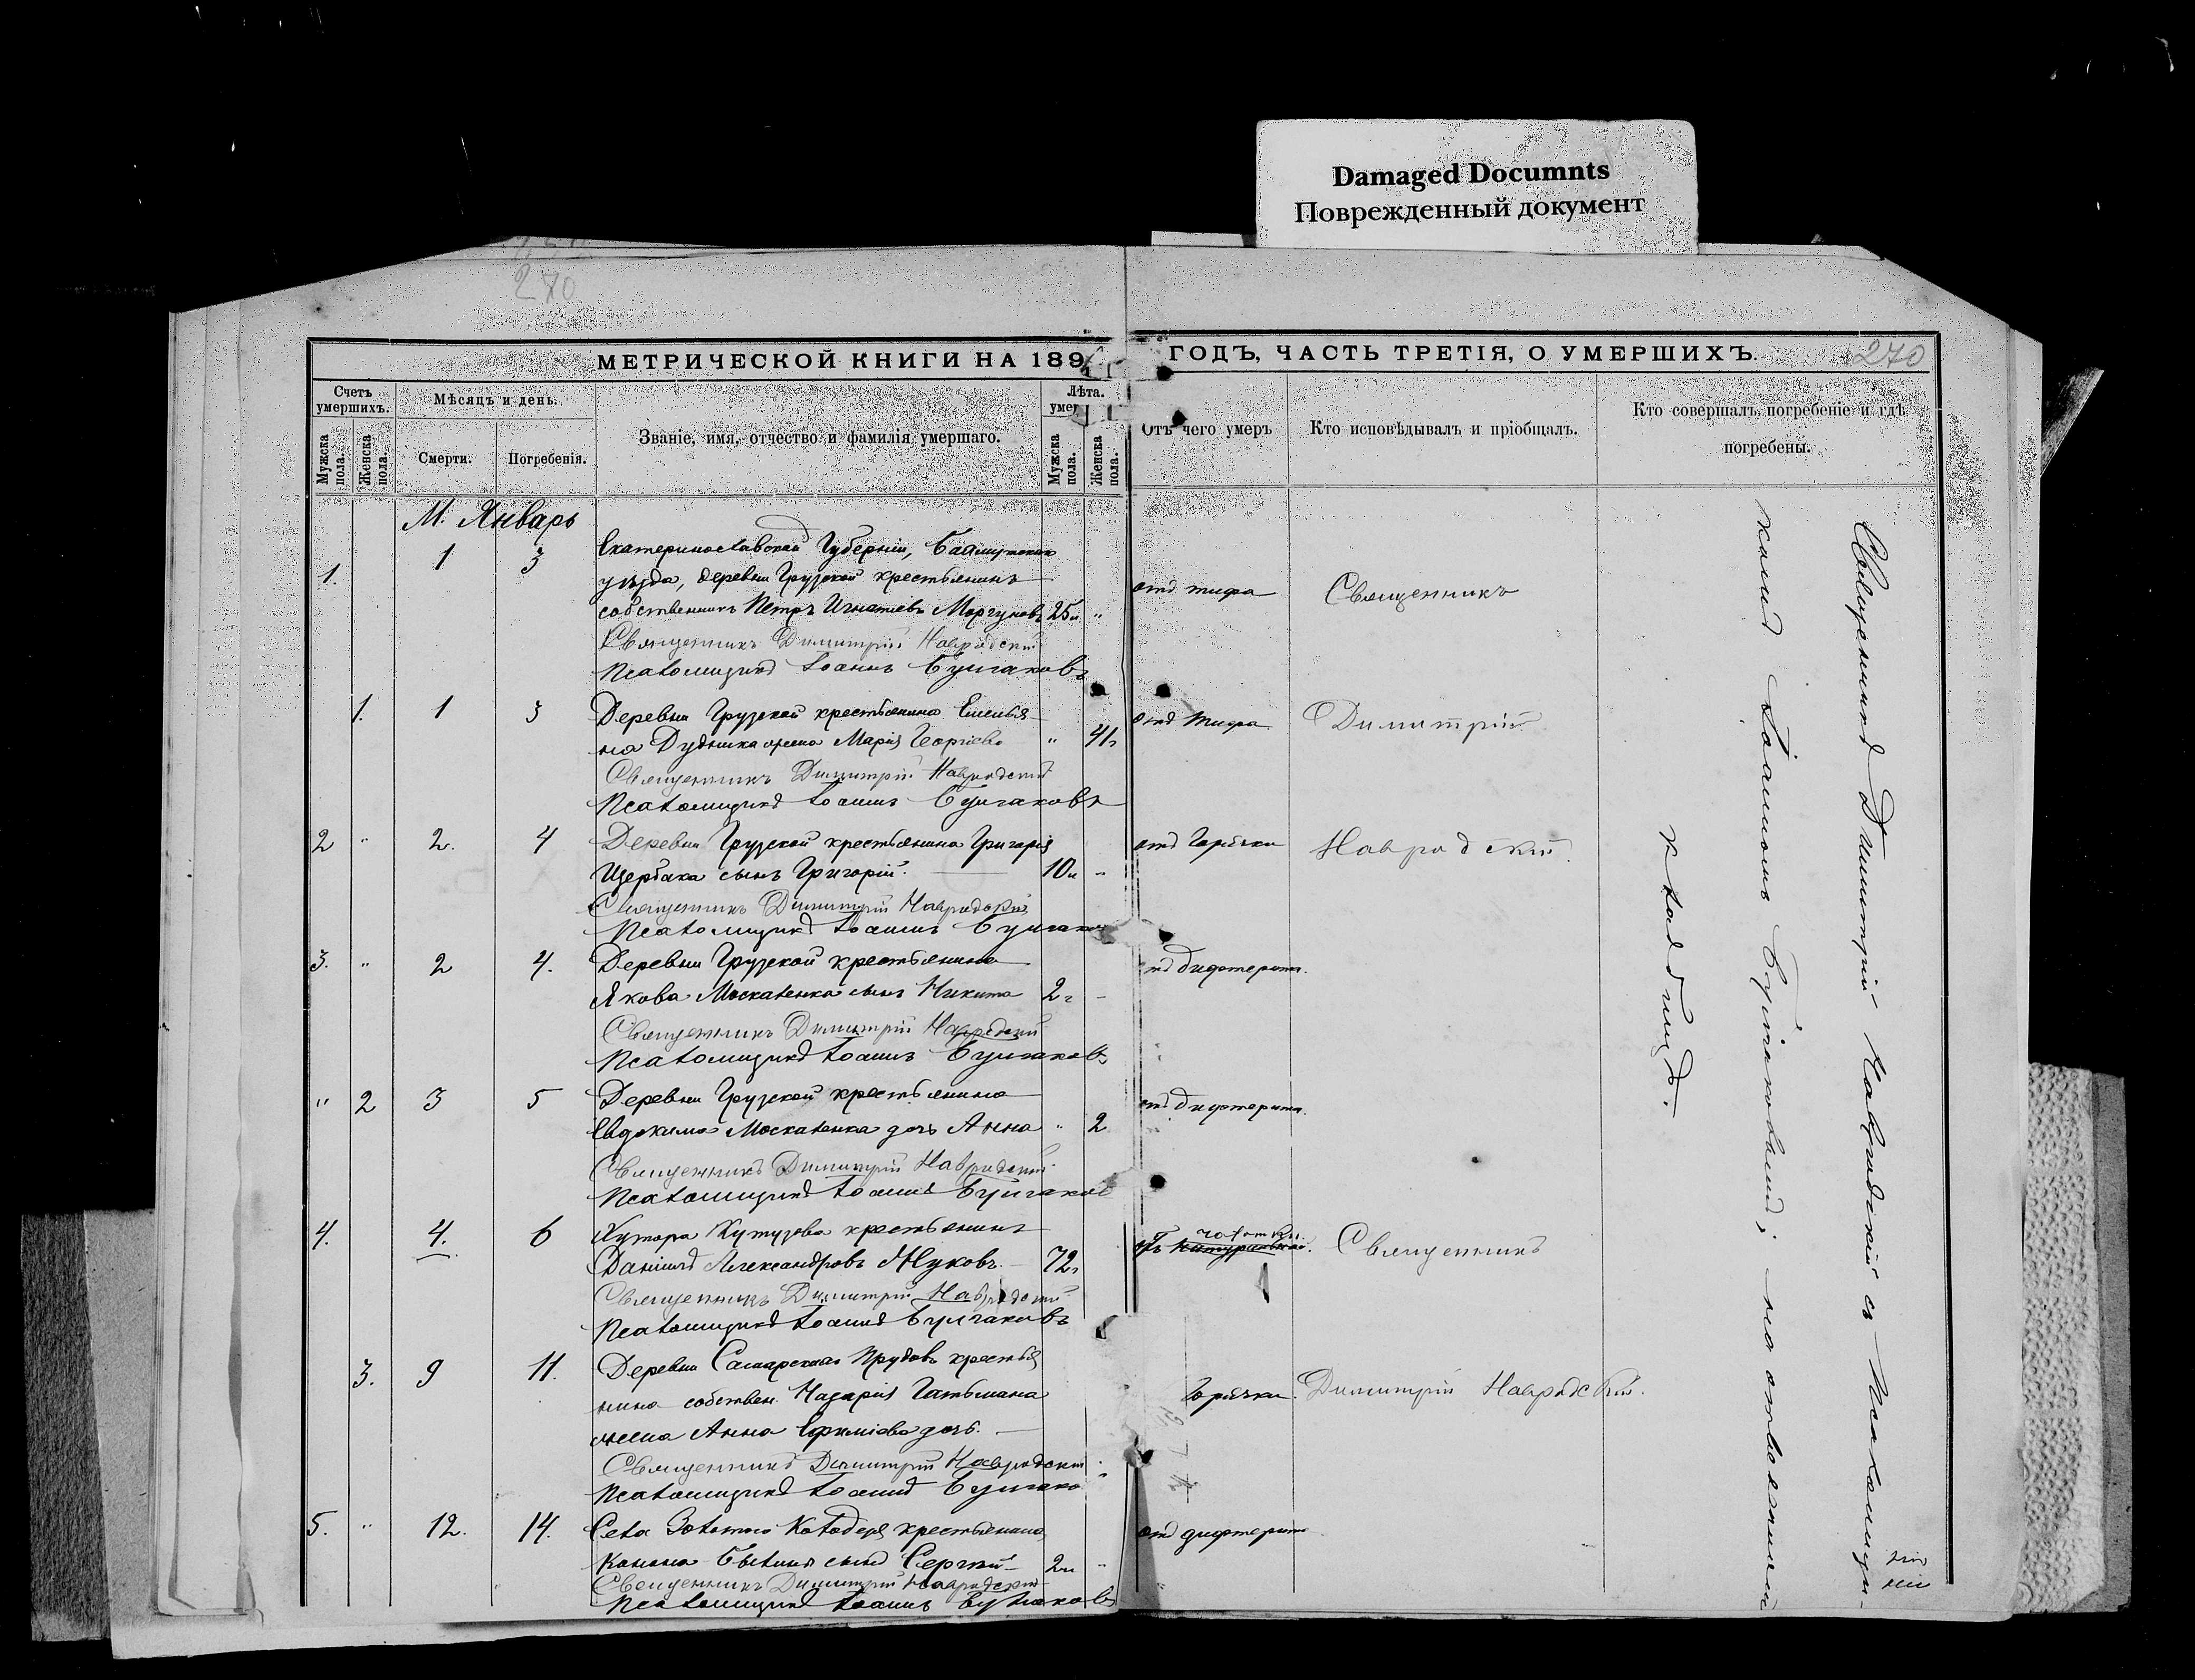 Damaged Documnts
Поврежденный документ
270
МЕТРИЧЕСКОЙ КНИГИ НА 189
ГОДЪ, ЧАСТЬ ТРЕТІЯ, О УМЕРШИХЪ.
270
Счетъ умершихъ.
Мѣсяцъ и день.
Званіе, имя, отчество и фамилія умершаго.
Лѣта.
умер
Мужска пола.
Женска пола.
Смерти.
Погребенія.
Мужска пола.
Женска пола.
Отъ чего умеръ
Кто исповѣдывалъ и пріобщалъ.
Кто совершалъ погребеніе и гдѣ погребены.
М. Январь
1. 1 3 Екатеринославской Губерніи, Бахмутскаго
уѣзда, деревни Грузской крестьянинъ
собственникъ Петръ Игнатіевъ Моргуновъ 25 "
отъ тифа
Священникъ
Священникъ Димитрій Навродскій
Псаломщикъ Іоаннъ Булгаковъ
1. 1 3 Деревни Грузской крестьянина Емелья
на Дудника жена Марія Георгіева " 41
отъ тифа
Димитрій
Священникъ Димитрій Навродскій
Псаломщикъ Іоаннъ Булгаковъ
2 " 2. 4 Деревни Грузской крестьянина Григорія
Щербака сынъ Григорій. 10 "
отъ Горячки
Навродскій.
Священникъ Димитрій Навродскій
Псаломщикъ Іоаннъ Булгаковъ
3. " 2 4. Деревни Грузской крестьянина
Якова Москаленка сынъ Никита 2
отъ дифтерита.
Священникъ Димитрій Навродскій
Псаломщикъ Іоаннъ Булгаковъ
" 2 3 5 Деревни Грузской крестьянина
Евдокима Москаленка дочь Анна " 2
отъ дифтерита.
Священникъ Димитрій Навродскій
Псаломщикъ Іоаннъ Булгаков
4. 4. 6 Хутора Кутузова крестьянинъ
Даніилъ Александровъ Жуковъ. 72
Священникъ
Священникъ Димитрій Навродскій
Псаломщикъ Іоаннъ Булгаковъ
3. 9 11. Деревни Самарскихъ Прудовъ крестья
нина собствен. Назарія Гатьмана
жена Анна Ефиміева дочь.
Горячки.
Димитрій Навродскій.
Священникъ Димитрій Навродскій
Псаломщикъ Іоаннъ Булгако
5. " 12. 14. Села Золотого Колодезя крестьянина
Конона сынъ Сергій 2 "
отъ дифтерита
Священникъ Димитрій Навродскій
Псаломщикъ Іоаннъ Булгаковъ
Священникъ Димитрій Навродскій съ Псаломщи-
комъ Іоанномъ Булгаковымъ; на
кладбищѣ.